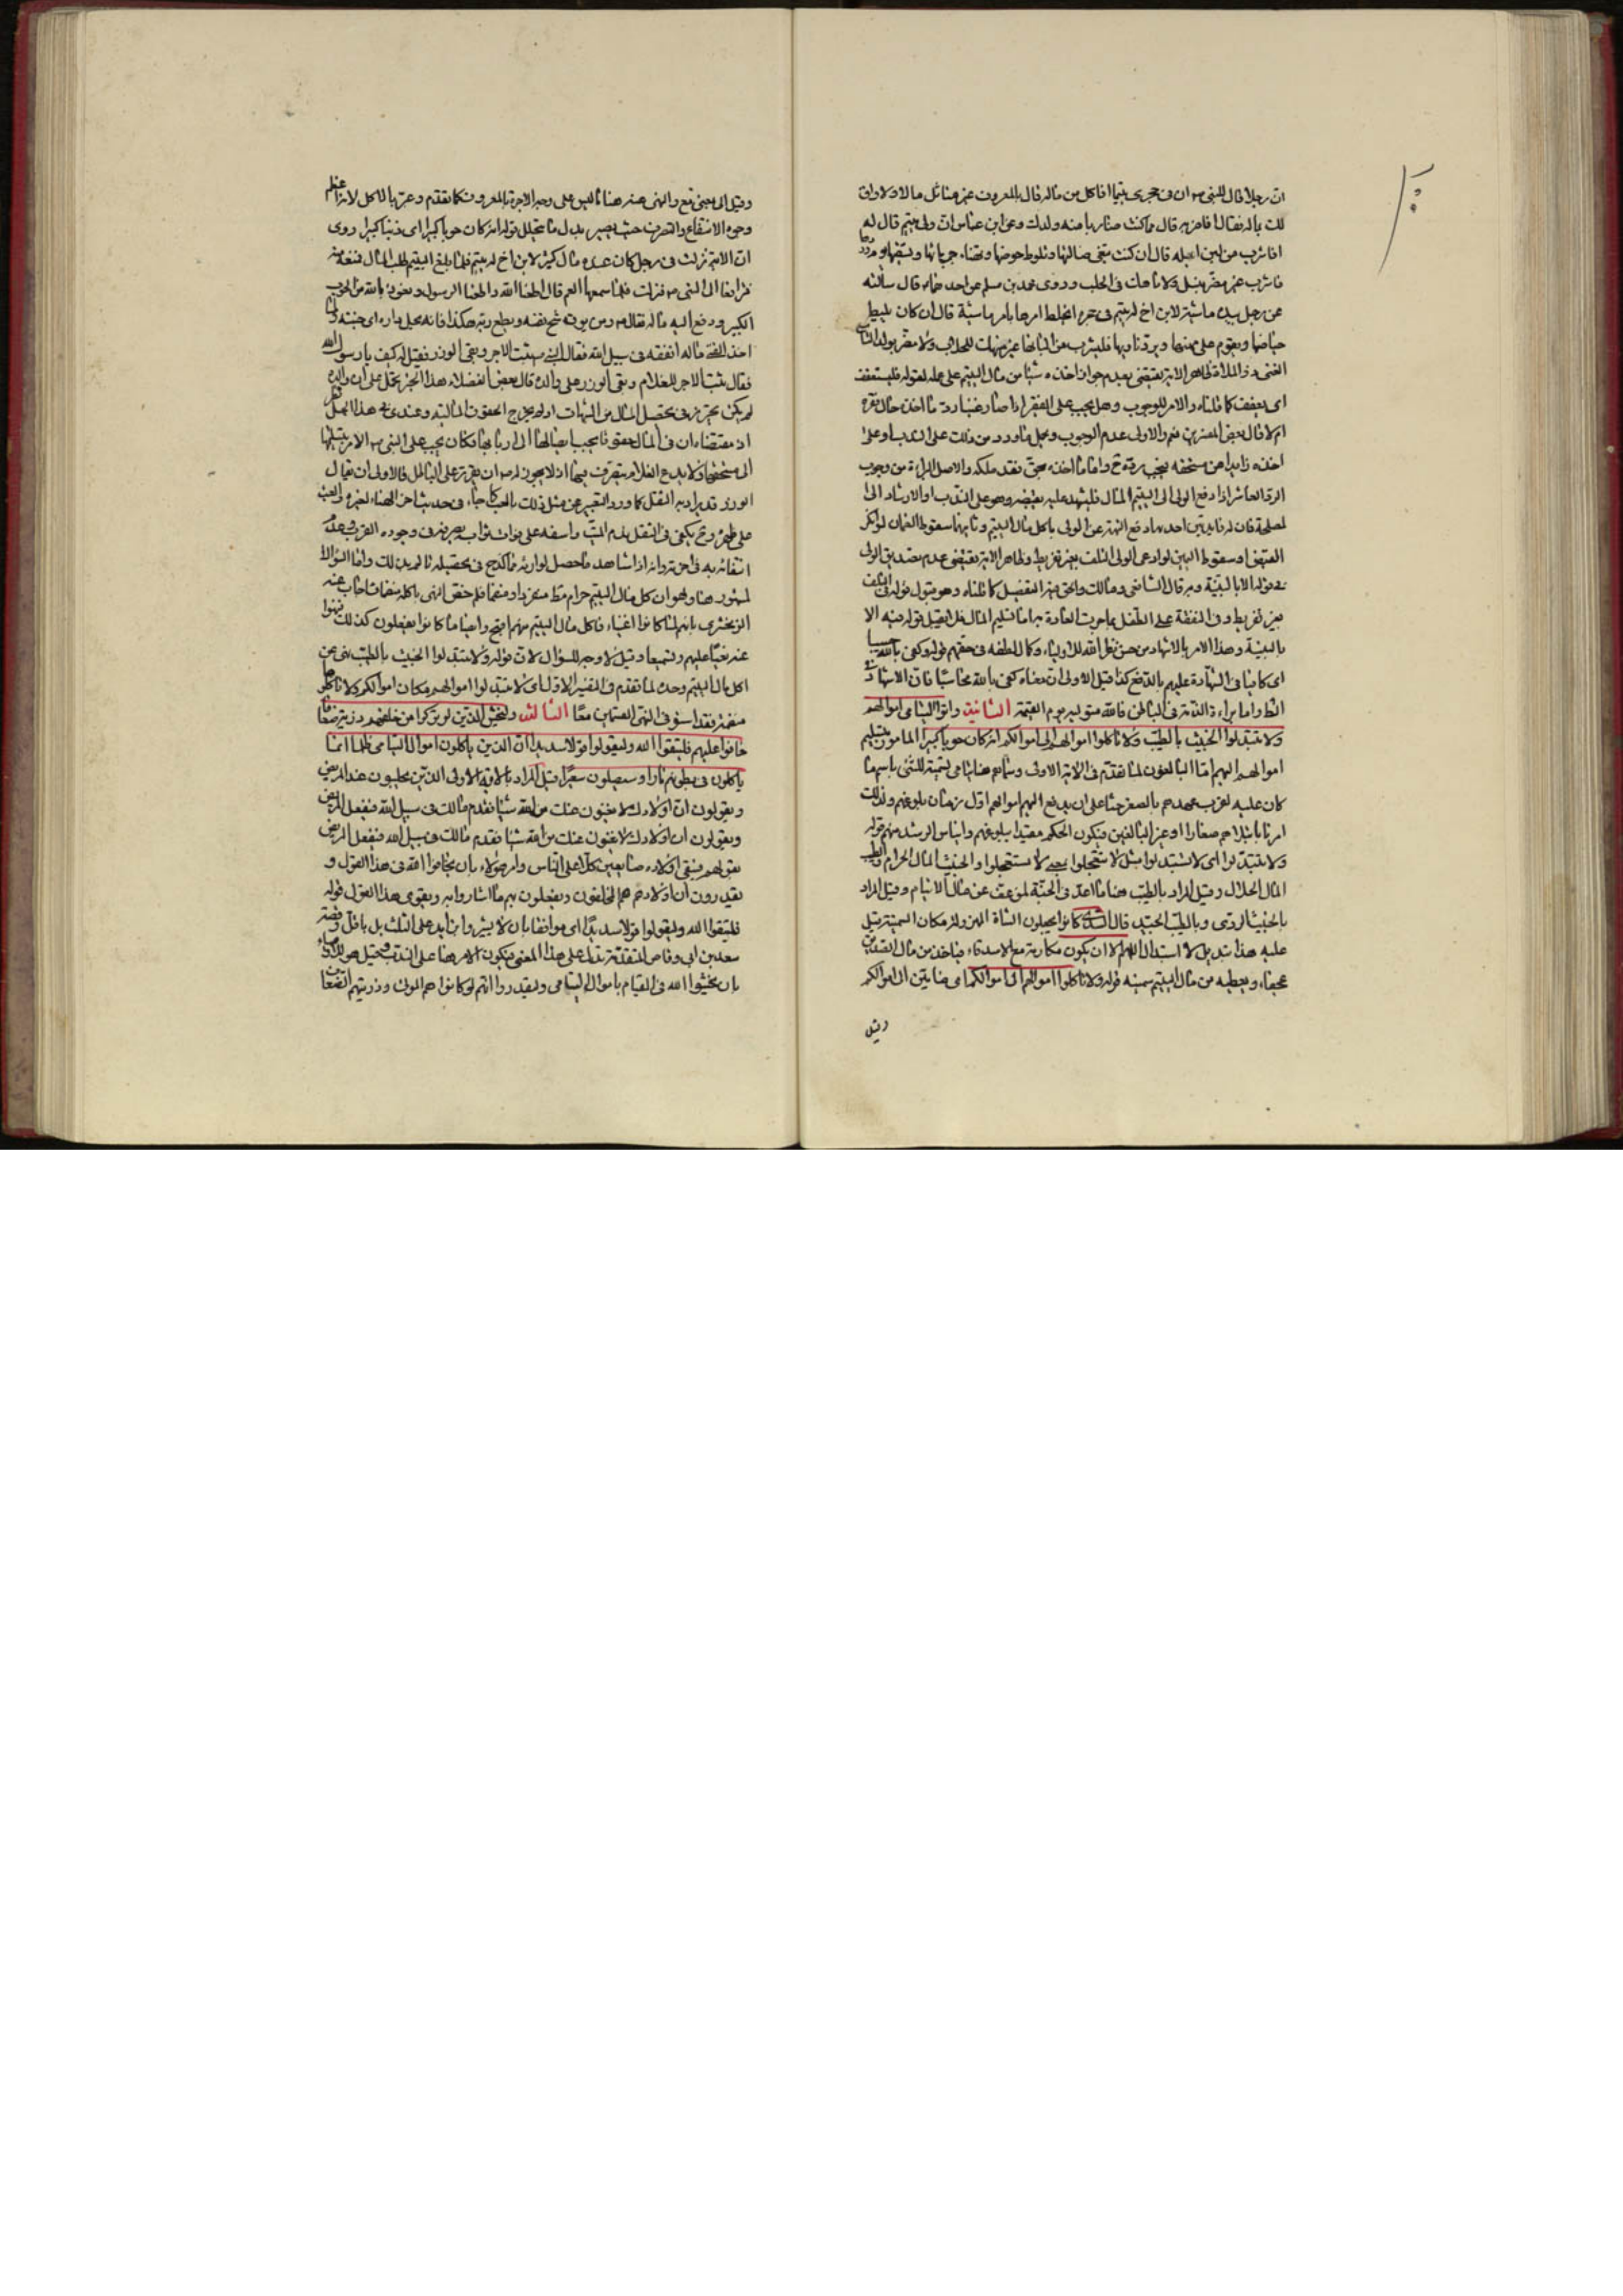 ان رجلا قال للنبي ص ان في حجري يتيما افاكل من ماله قال بالمعروف غير متاثل مالا ولا واق
لك بماله فقال افاضربه قال مما كنت ضاربا منه ولدك وعن ابن عباس ان ولي يتيم قال له
افاشرب من لبن ابله قال ان كنت تبغي ضالتها وتلوط حوضها وتهنا جرباها وتسقيها يوم وردها
فاشرب غير مضر بنسل ولا ناهك في الحلب وروى محمد بن مسلم عن احدهما ع قال سألته
عن رجل بيده ماشية لابن اخ له يتيم في حجره ايخلط امرها بامر ماشيته قال ان كان يليط
حياضها ويقوم على مهنتها ويرد نادها فليشرب من البانها غير منهك للحلاب ولا مضر بولد الثاني
الغني ذو الملاة ظاهر الاية يقتضي عدم جواز اخذه شيئا من مال اليتيم على عمله لقوله فليستعفف
اي يعفف كما قلناه والامر للوجوب وهل يجب على الفقير اذا صار غنيا رد ما اخذ حال فقره
ام لا قال بعض المفسرين نعم والاولى عدم الوجوب ويحمل ما ورد من ذلك على الندب او على
اخذه زايدا عن مستحقه فيجب رده ح واما ما اخذه بحق فقد ملكه والاصل البراءة من وجوب
الرد العاشر اذا دفع الولي الى اليتيم المال فليشهد عليه بقبضه وهو على الندب او الارشاد الى
لمصلحة فان له فايدتين احديهما دفع التهمة عن الولي باكل مال اليتيم وثانيهما سقوط الضمان لو انكر
القبض وسقوط اليمين لو ادعى الولي التلف بغير تفريط وظاهر الاية يقتضي عدم تصديق الولي
في قوله الا بالبينة وبه قال الشافعي ومالك والحق فيه التفصيل كما قلناه وهو قبول قوله في التلف
بغير تفريط وفي النفقة على الطفل بما جرت العادة به اما تسليم المال فلا يقبل قوله فيه الا
بالبينة وهذا الامر بالاشهاد من حسن نظر الله للاولياء وكمال لطفه في حقهم قوله وكفى بالله حسيبا
اي كافيا في الشهادة عليهم بالدفع كذا قيل والاولى ان معناه كفى بالله محاسبا فان الاشهاد في
الظاهر واما براءة الذمة في الباطن فالله متوليه يوم القيمة الثانية واتوا اليتامى اموالهم
ولا تتبدلوا الخبيث بالطيب ولا تاكلوا اموالهم الى اموالكم انه كان حوبا كبيرا المامورين بتسليم
اموالهم اليهم اما البالغون لما تقدم في الاية الاولى وسماهم هنا يتامى تسمية للشئ باسم ما
كان عليه لقرب عهدهم بالصغر حثا على ان يدفع اليهم اموالهم اول زمان بلوغهم ولذلك
امرنا بابتلاهم صغارا او غير البالغين فيكون الحكم مقيدا ببلوغهم وايناس الرشد منهم قوله
ولا تتبدلوا اي لا تستبدلوا مثل لا تتعجلوا بمعنى لا تستعجلوا والخبيث المال الحرام والطيب
المال الحلال وقيل المراد بالطيب هنا ما اعد في الجنة لمن عف عن مال الايتام وقيل المراد
بالخبيث الردي وبالطيب الجيد قال السدي كانوا يجعلون الشاة المهزولة مكان السمينة قيل
عليه هذا تبديل لا استبدال اللهم الا ان يكون مكارمة مع الاصدقاء فياخذ من مال الصديق
عجفاء ويعطيه من مال اليتيم سمينه قوله ولا تاكلوا اموالهم الى اموالكم اي مضافين الى اموالكم
وقيل
وقيل الى بمعنى مع والنهي عنه هنا ما ليس على وجه الاجرة بالمعروف كما تقدم وعبر بالاكل لانه اعظم
وجوه الانتفاع والتصرف حيث يصير بدل ما يتحلل قوله انه كان حوبا كبيرا اي ذنبا كبيرا روى
ان الاية نزلت في رجل كان عنده مال كثير لابن اخ له يتيم فلما بلغ اليتيم طلب المال فمنعه منه
فترافعا الى النبي ص فنزلت فلما سمعها العم قال اطعنا الله واطعنا الرسول ونعوذ بالله من الحوب
الكبير ودفع اليه ماله فقال ص ومن يوق شح نفسه ويطع ربه هكذا فانه يحل داره اي جنته فلما
اخذ الفتى ماله انفقه في سبيل الله فقال النبي ص ثبت الاجر وبقي الوزر فقيل له كيف يا رسول الله
فقال ثبت الاجر للغلام وبقي الوزر على والده قال بعض الفضلاء هذا الخبر يحمل على ان والده
لم يكن يحترز في تحصيل المال من الشبهات او لم يخرج الحقوق المالية وعندي في هذا الحمل نظر
اذ مقتضاه ان في المال حقوقا يجب ايصالها الى اربابها فكان يجب على النبي ص الامر بتسليمها
الى مستحقها ولا يدع الغلام يتصرف فيها اذ لا يجوز له ص ان يقرره على الباطل فالاولى ان يقال
الوزر قد يراد به الثقل كما ورد التعبير عن مثل ذلك بالعب كما جاء في حديث اخر المهناء لغيره والعب
على ظهره وح يكفي في الثقل ندم الميت واسفه على فوات ثواب بصرفه في وجوه القرب وعدم
انتفاعه به في اخرته وانه اذا شاهد ما حصل لوارثه مما كدح في تحصيله تالم بذلك واما السؤال
لمشهور هنا وهو ان كل مال اليتيم حرام فقط منفردا ومنضما فلم خص النهي باكله منضما اجاب عنه
الزمخشري بانهم لما كانوا اغنياء فاكل مال اليتيم منهم اقبح وايضا ما كانوا يفعلون كذلك فنهوا
عنه نعيا عليهم وتسميعا وقيل لا وجه للسؤال لان قوله ولا تتبدلوا الخبيث بالطيب نهي عن
اكل مال اليتيم وحده لما تقدم في التفسير الاول اي لا تتبدلوا اموالهم مكان اموالكم ولا تاكلوها
منضمة فقد استوفى النهي القسمين معا الثالثة وليخش الذين لو تركوا من خلفهم ذرية ضعافا
خافوا عليهم فليتقوا الله وليقولوا قولا سديدا ان الذين ياكلون اموال اليتامى ظلما انما
ياكلون في بطونهم نارا وسيصلون سعيرا قيل المراد بالاية الاولى الذين يجلسون عند المريض
ويقولون ان اولادك لا يغنون عنك من الله شيئا فقدم مالك في سبيل الله فيفعل المريض
ويقولون ان اولادك لا يغنون عنك من الله شيئا فقدم مالك في سبيل الله فيفعل المريض
بقولهم فيبقى اولاده ضايعين كلا على الناس وامر هؤلاء بان يخافوا الله في هذا القول و
يقدرون ان اولادهم هم المخلفون ويفعلون بهم ما اشاروا به ويقوى هذا القول قوله
فليتقوا الله وليقولوا قولا سديدا اي موافقا بان لا يشيروا بزايد على الثلث بل باقل وقصة
سعد بن ابي وقاص المتقدمة تدل على هذا المعنى فيكون الامر هنا على الندب وقيل هو للاوصياء
بان يخشوا الله في القيام باموال اليتامى وليقدروا انهم لو كانوا هم الموتى وذريتهم الضعفا